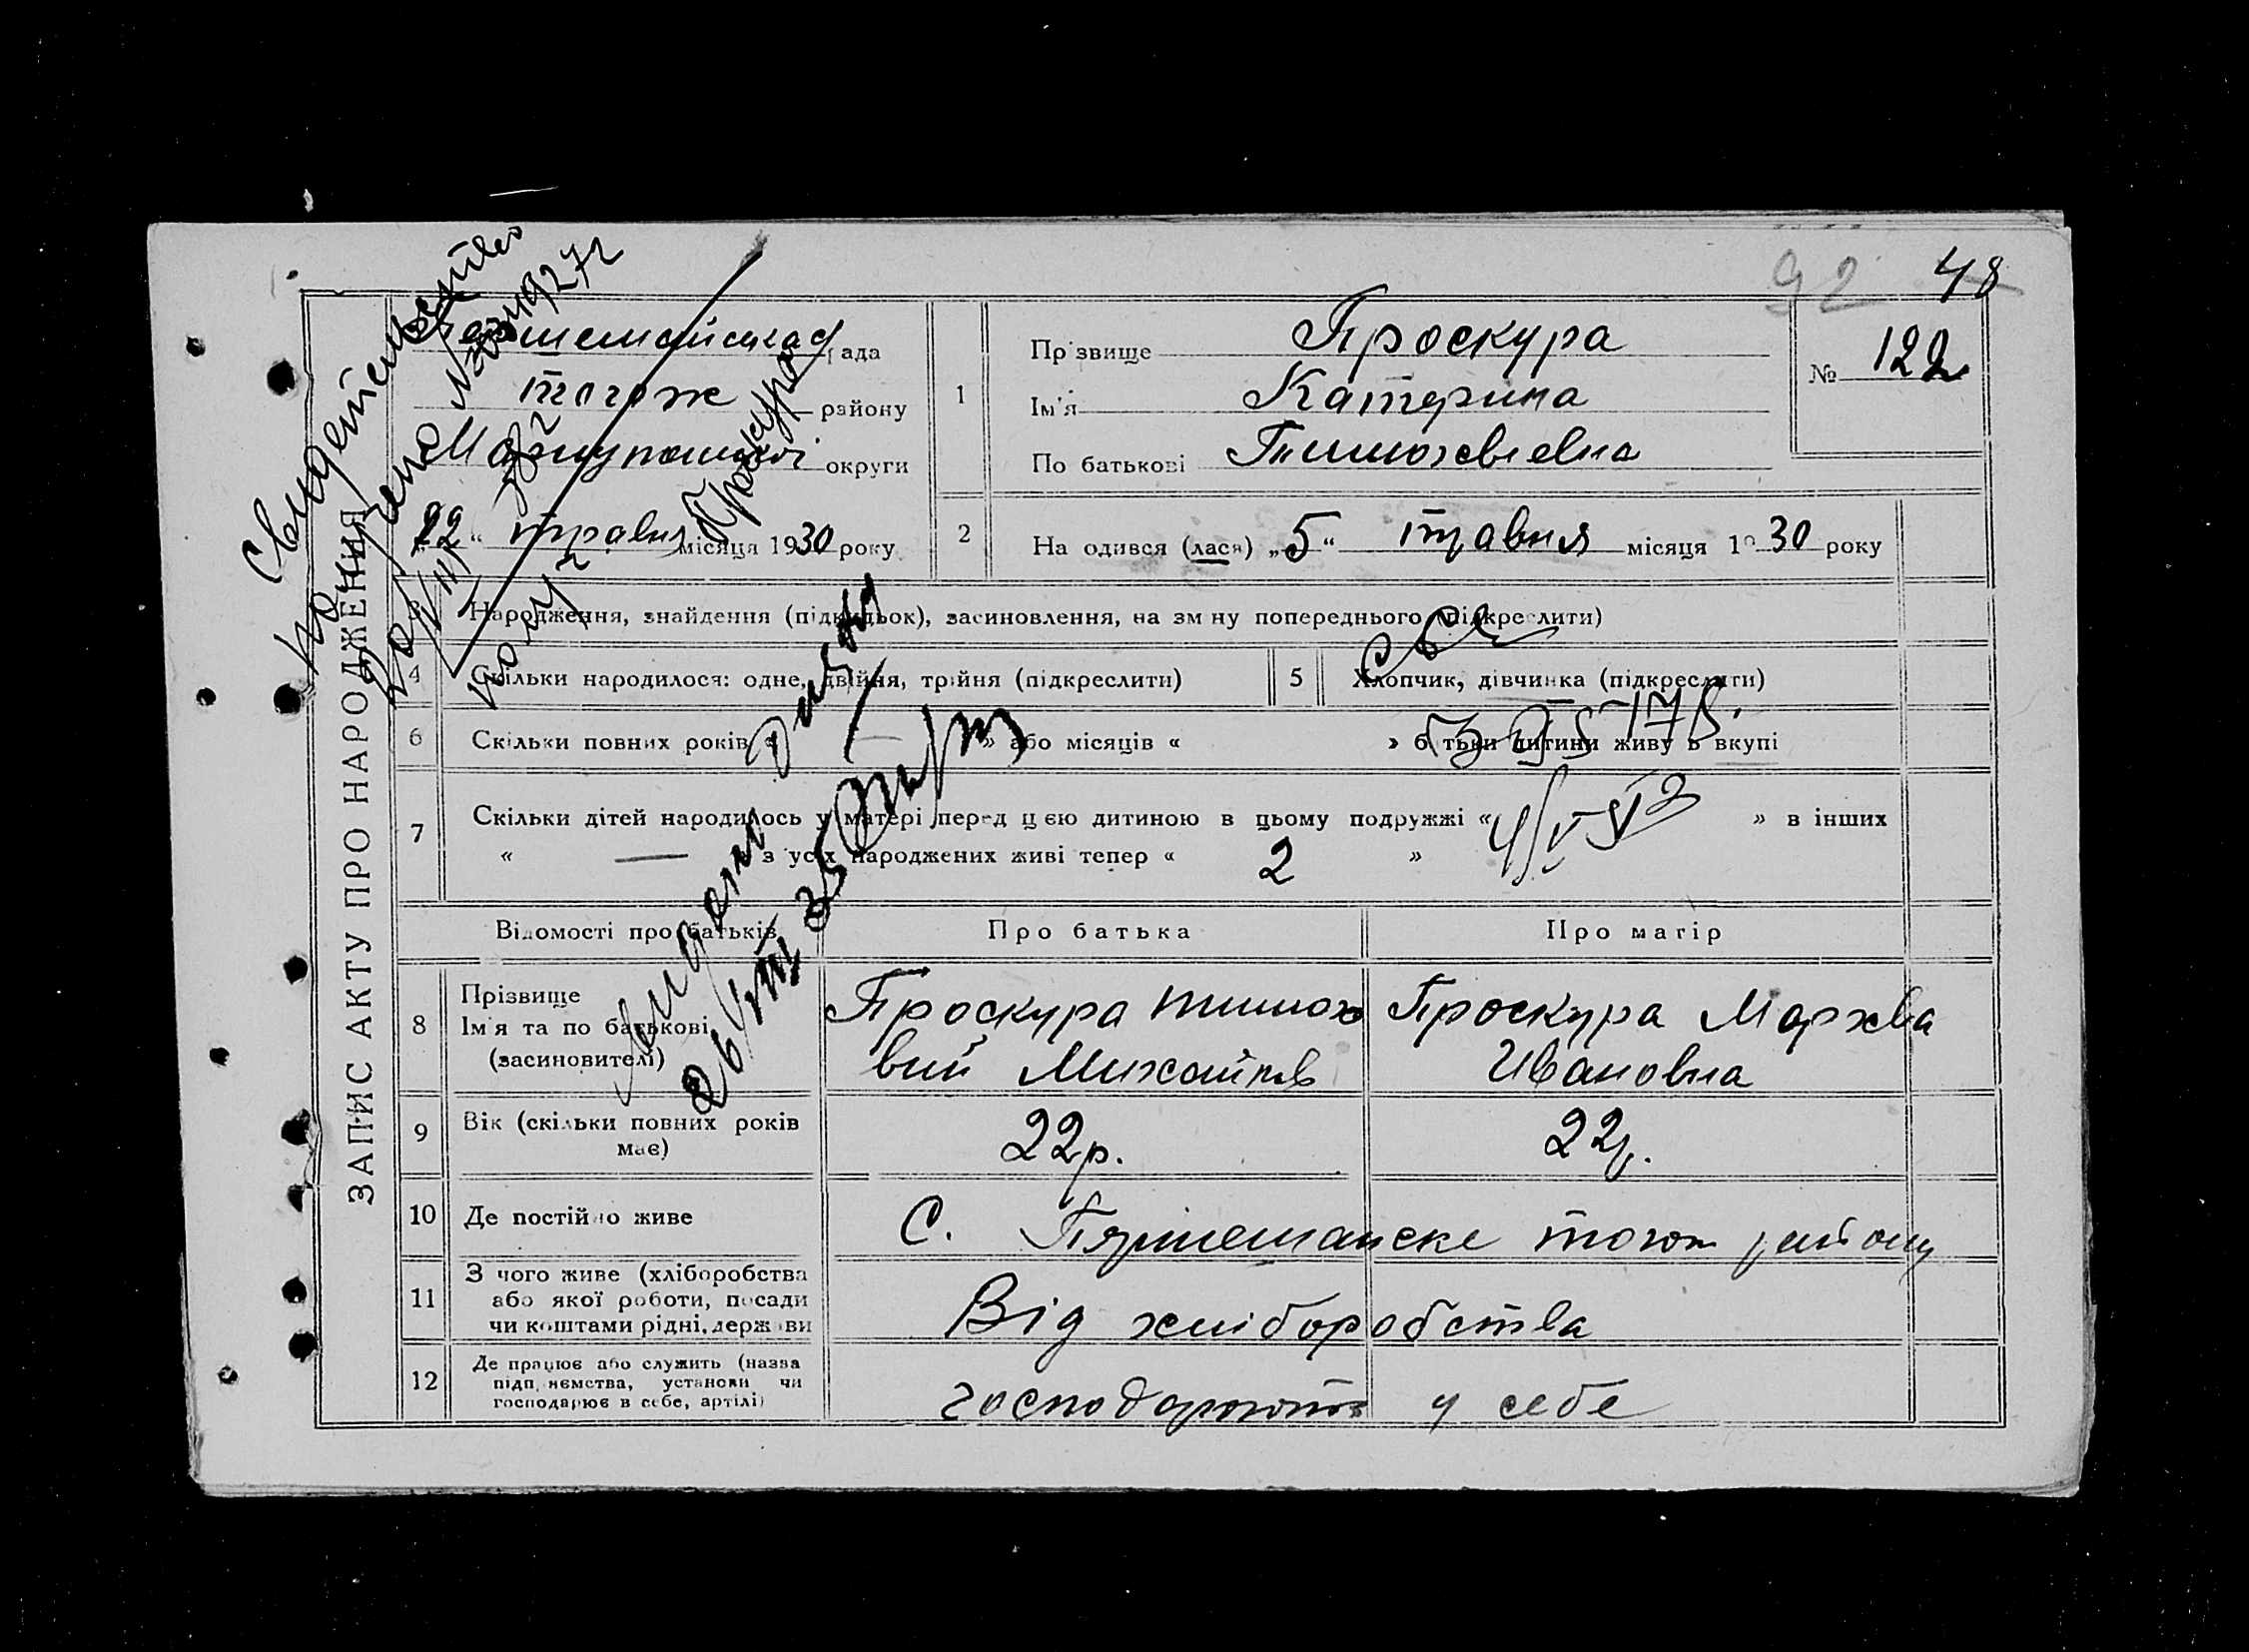 92 48
Проскура
рада Прізвище
№ 122
тогож
району 1 Ім'я Катерина
Маріупольскої округи По батькові Тимохвієвна
"22" травня місяця 1930 року 2 На одився (лася) „5“ травня місяця 1930 року
ЗАПИС АКТУ ПРО НАРОДЖЕННЯ
3 Народження, знайдення (підкидьок), засиновлення, на зміну попереднього (підкреслити)
4 Скільки народилося: одне, двійня, трійня (підкреслити) 5 Хлопчик, дівчинка (підкреслити)
6 Скільки повних років « — » або місяців « » батьки дитини живуть вкупі
7 Скільки дітей народилось у матері перед цією дитиною в цьому подружжі « » в інших
« — » з усіх народжених живі тепер « 2 »
Відомості про батьків Про батька Про матір
8 Прізвище
Ім'я та по батькові
(засиновителі)
Проскура Тимох
вий Михайлов
Проскура Мархва
Ивановна
9 Вік (скільки повних років
має) 22р. 22р.
10 Де постійно живе С. тогож району
11 З чого живе (хліборобства
або якої роботи, посади
чи коштами рідні, держави
Від хліборобства
12 Де працює або служить (назва
підприємства, установи чи
господарює в себе, артілі)
господарюють у себе
Свидетельство
Проскура